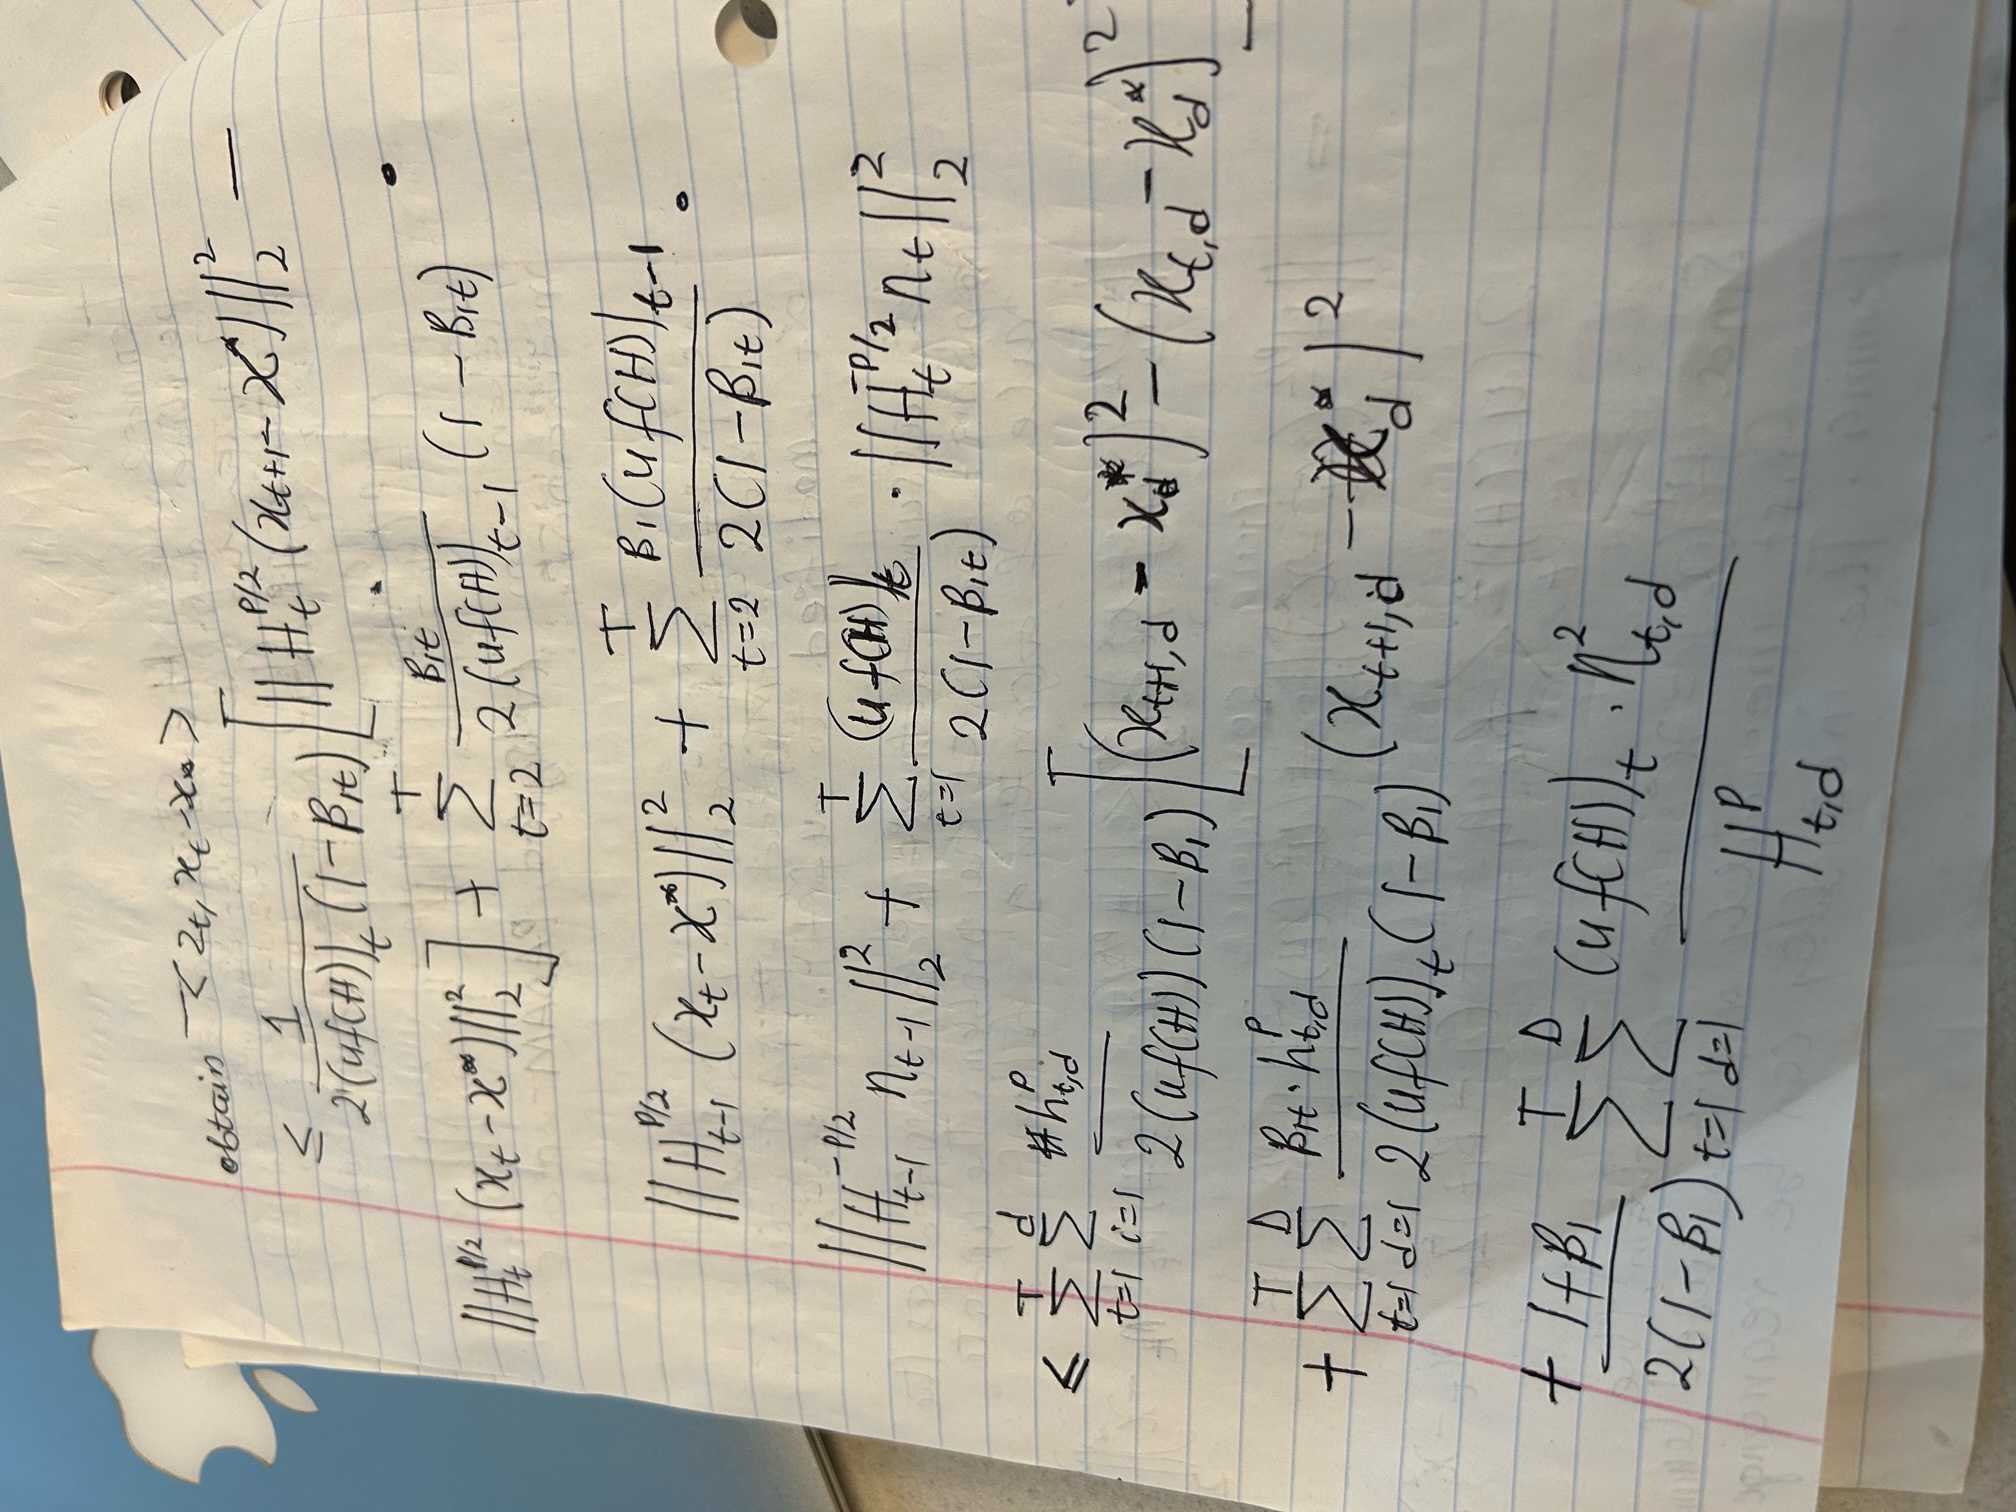 obtain -< z_t, x_t - x* >
≤ 1 / 2(uf(H))_t (1 - β_{1t}) [ ||H_t^{P/2} (x_{t+1} - x*)||_2^2 -
||H_t^{P/2} (x_t - x*)||_2^2 ] + Σ_{t=2}^{T} β_{1t} / 2(uf(H))_{t-1} (1 - β_{1t}) ·
||H_{t-1}^{P/2} (x_t - x*)||_2^2 + Σ_{t=2}^{T} β_1(uf(H))_{t-1} / 2(1 - β_{1t}) ·
||H_{t-1}^{-P/2} n_{t-1}||_2^2 + Σ_{t=1}^{T} (uf(H))_t / 2(1 - β_{1t}) · ||H_t^{-P/2} n_t||_2^2
≤ Σ_{t=1}^{T} Σ_{i=1}^{d} h_{t,d}^P / 2(uf(H))(1 - β_1) [ (x_{t+1,d} - x_d*)^2 - (x_{t,d} - x_d*)^2
+ Σ_{t=1}^{T} Σ_{d=1}^{D} β_{1t} · h_{t,d}^P / 2(uf(H))_t (1 - β_1) (x_{t+1,d} - x_d*)^2
+ 1+β_1 / 2(1 - β_1) Σ_{t=1}^{T} Σ_{d=1}^{D} (uf(H))_t · n_{t,d}^2 / H_{t,d}^P